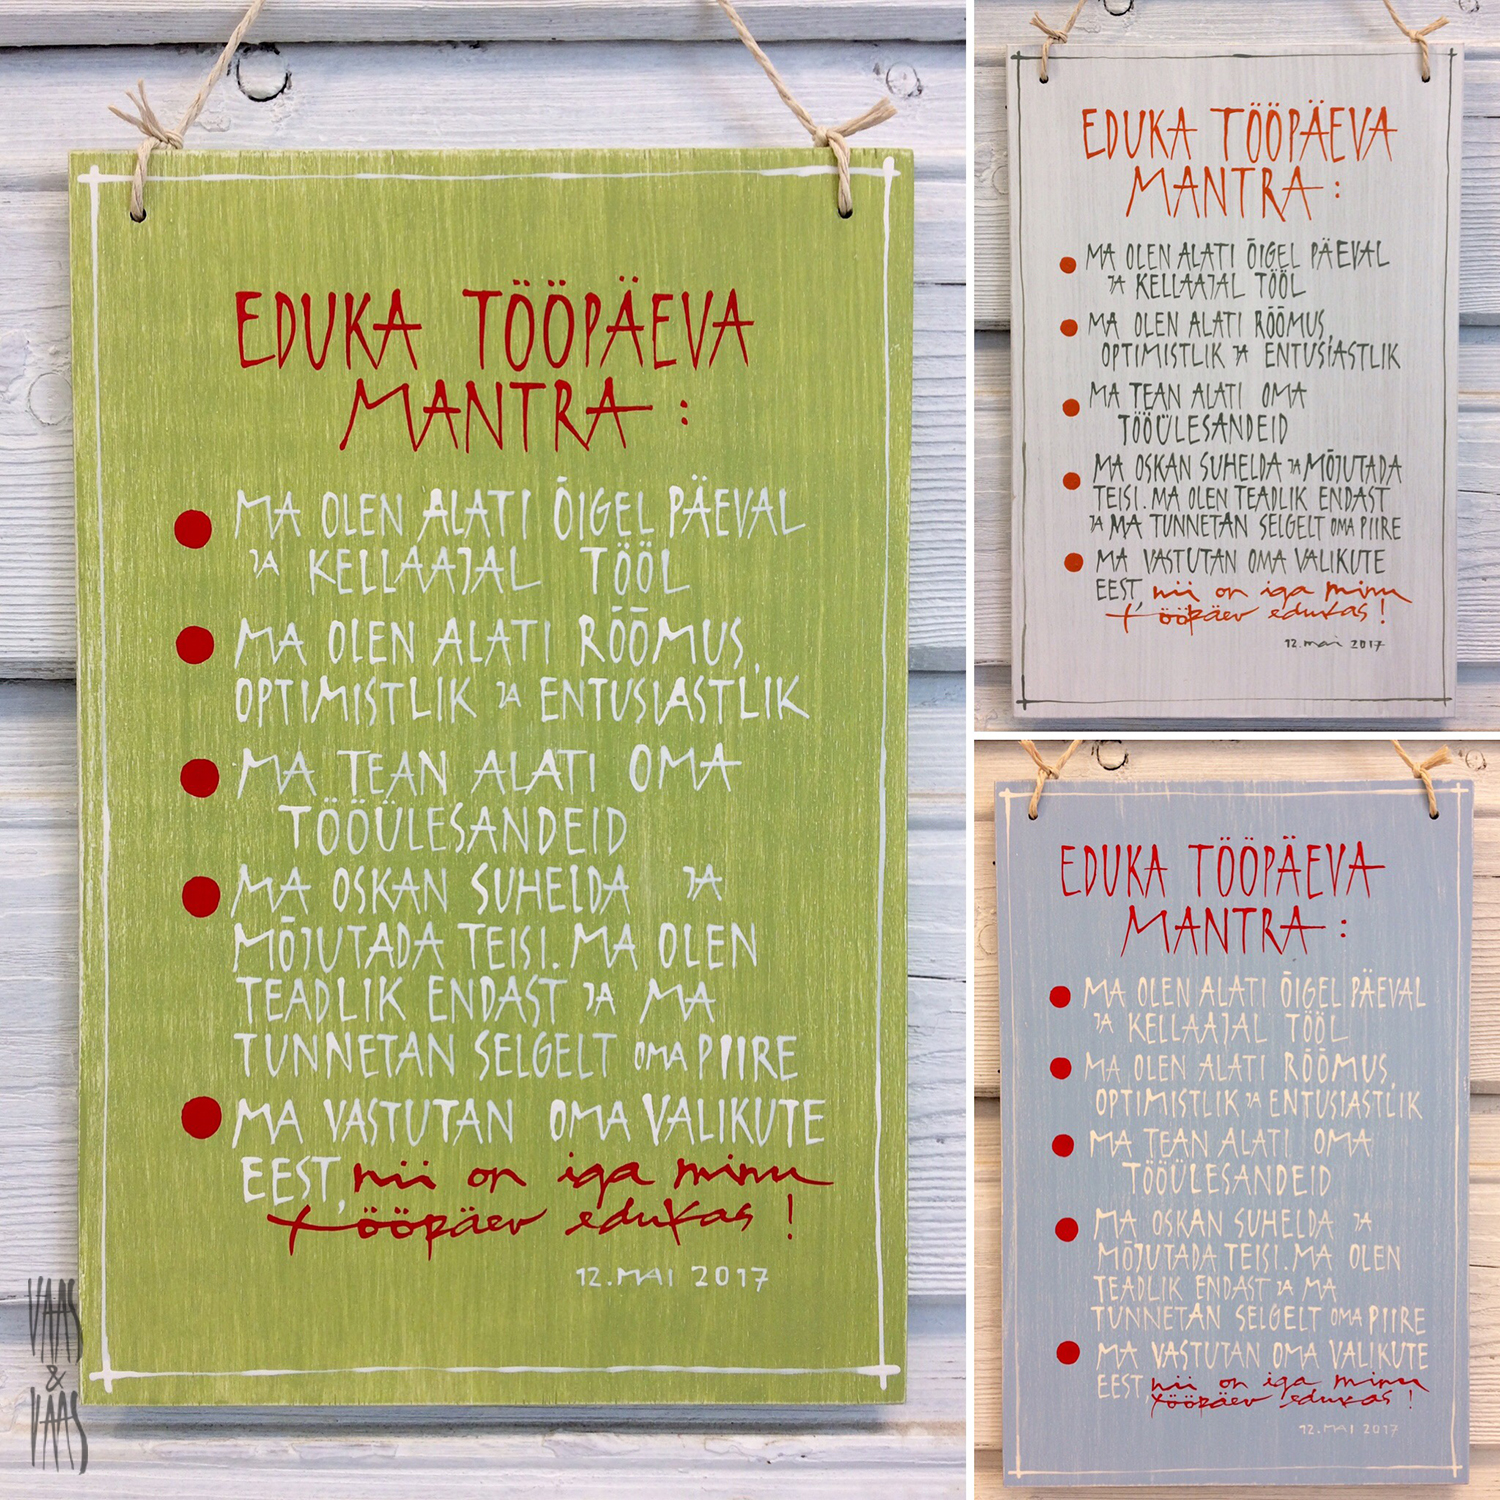 EDUKA TÖÖPÄEVA
MANTRA:
MA OLEN ALATI ÕIGEL PÄEVAL
JA KELLAAJAL TÖÖL
MA OLEN ALATI RÕÕMUS,
OPTIMISTLIK JA ENTUSIASTLIK
MA TEAN ALATI OMA
TÖÖÜLESANDEID
MA OSKAN SUHELDA JA
MÕJUTADA TEISI. MA OLEN
TEADLIK ENDAST JA MA
TUNNETAN SELGELT OMA PIIRE
MA VASTUTAN OMA VALIKUTE
EEST, nii on iga minu
tööpäev edukas!
12. MAI 2017
VAAS
&
VAAS
EDUKA TÖÖPÄEVA
MANTRA:
MA OLEN ALATI ÕIGEL PÄEVAL
JA KELLAAJAL TÖÖL
MA OLEN ALATI RÕÕMUS,
OPTIMISTLIK JA ENTUSIASTLIK
MA TEAN ALATI OMA
TÖÖÜLESANDEID
MA OSKAN SUHELDA JA MÕJUTADA
TEISI. MA OLEN TEADLIK ENDAST
JA MA TUNNETAN SELGELT OMA PIIRE
MA VASTUTAN OMA VALIKUTE
EEST, nii on iga minu
tööpäev edukas!
12. mai 2017
EDUKA TÖÖPÄEVA
MANTRA:
MA OLEN ALATI ÕIGEL PÄEVAL
JA KELLAAJAL TÖÖL
MA OLEN ALATI RÕÕMUS,
OPTIMISTLIK JA ENTUSIASTLIK
MA TEAN ALATI OMA
TÖÖÜLESANDEID
MA OSKAN SUHELDA JA
MÕJUTADA TEISI. MA OLEN
TEADLIK ENDAST JA MA
TUNNETAN SELGELT OMA PIIRE
MA VASTUTAN OMA VALIKUTE
EEST, nii on iga minu
tööpäev edukas!
12. MAI 2017